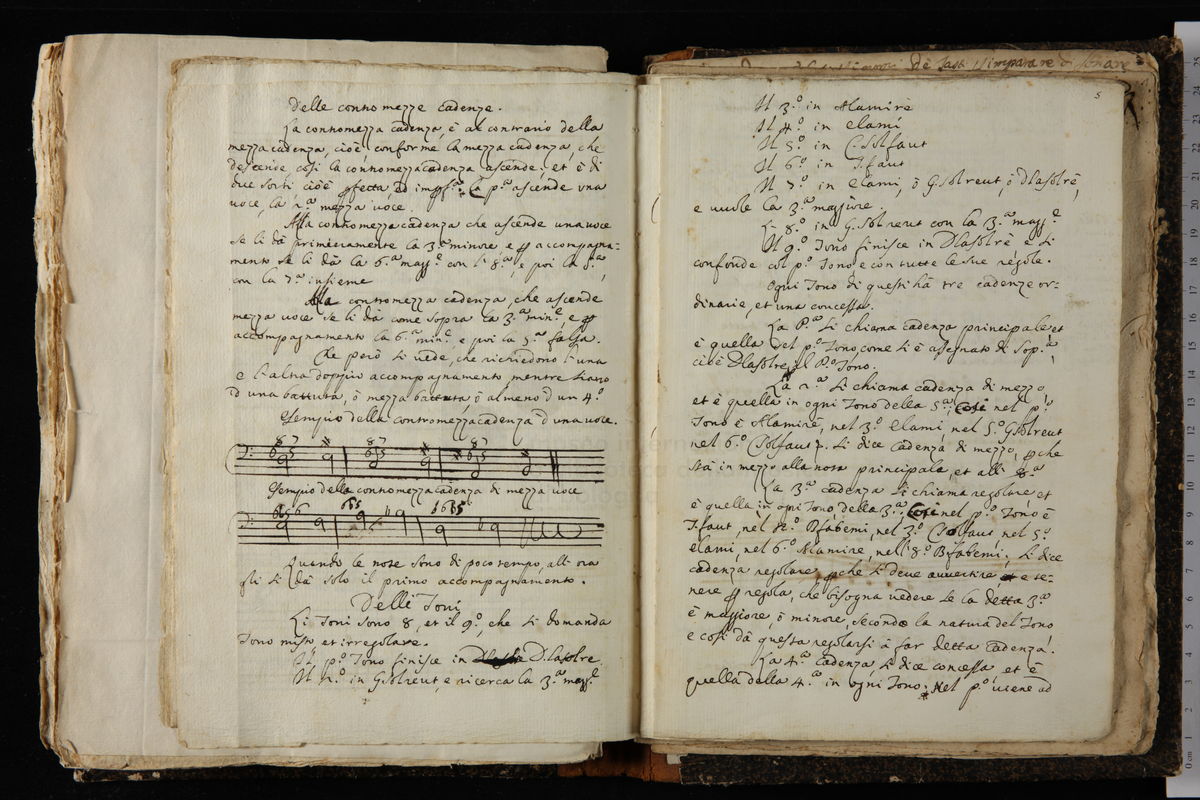 Delle contromezze cadenze.
La contromezza cadenza, è al contrario della
mezza cadenza, cioè, conforme la mezza cadenza, che
descende, così la contromezza cadenza ascende, et è di
due sorti cioè pfetta, ed impf.ª La p.ª ascende una
voce, la 2.ª mezza voce.
Alla contromezza cadenza che ascende una voce
se li dà primieramente la 3.ª minore e p accompagna-
mento se li dà la 6.ª magg.e con l'8.ª, e poi la 5.ª,
con la 7.ª insieme
Alla contromezza cadenza, che ascende
mezza voce se li dà come sopra la 3.ª min.e, e p
accompagnamento la 6.ª min.e e poi la 5.ª falsa.
Che però si vede, che richiedono l'una
e l'altra doppio accompagnamento, mentre siano
d'una battuta, ò mezza battuta, ò almeno d'un 4.º
Esempio della contromezza cadenza d'una voce.
Esempio della contromezza cadenza di mezza voce
Quando le note sono di poco tempo, all'ora
gli si dà solo il primo accompagnamento.
Delli Toni
Li Toni sono 8, et il 9.º, che si domanda
Tono misto et irregolare.
Il p.º Tono finisce in D.lasolre
Il 2.º in G.solreut, e ricerca la 3.ª magg.e
5
Il 3.º in Alamirè
Il 4.º in elamí
Il 5.º in C.solfaut
Il 6.º in F.faut
Il 7.º in elami, ò G.solreut, ò Dlasolrè,
e vuole la 3.ª maggiore.
L'8.º in G.solreut con la 3.ª magg.e
Il 9.º Tono finisce in Dlasolrè e si
confonde col p.º Tono, e con tutte le sue regole.
Ogni Tono di questi hà tre cadenze or-
dinarie, et una concessa.
La P.ª si chiama cadenza principale, et
è quella del p.º Tono, come si è assegnato di sop.ª,
cioè Dlasolre, al P.º Tono.
La 2.ª si chiama cadenza di mezzo,
et è quella in ogni Tono della 5.ª; Così nel p.º
Tono è Alamirè, nel 3.º elami, nel 5.º G.solreut
nel 6.º C.solfaut. Si dice cadenza di mezzo, pche
stà in mezzo alla nota principale, et all' 8.ª
La 3.ª cadenza si chiama regolare et
è quella, in ogni Tono, della 3.ª Così nel p.º Tono è
F.faut, nel 2.º Bfabemi, nel 3.º C.solfaut nel 5.º
elami, nel 6.º Alamire, nell' 8.º Bfabemi; si dice
cadenza regolare pche si deve avvertire, e te-
nere p regola, che bisogna vedere se la detta 3.ª
è maggiore, ò minore, secondo la natura del Tono
e così dà questa regolarsi à far detta cadenza.
La 4.ª cadenza, si dice concessa, et è
quella della 4.ª in ogni Tono; Nel p.º viene ad